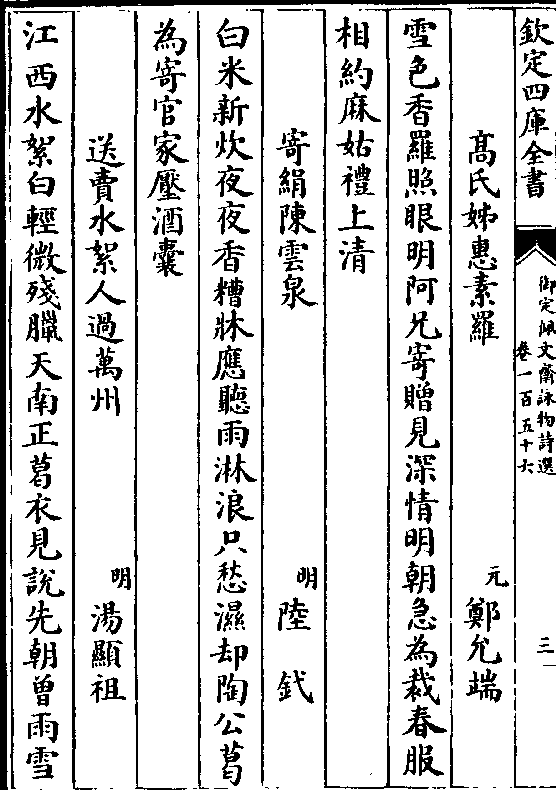 欽定四庫全書
御定佩文齋詠物詩選
卷一百五十六
三
高氏姊惠素羅
元
鄭允端
雪色香羅照眼明阿兄寄贈見深情明朝急為裁春服
相約麻姑禮上清
寄絹陳雲泉
明
陸釴
白米新炊夜夜香糟牀應聽雨淋浪只愁濕却陶公葛
為寄官家壓酒囊
送賣水絮人過萬州
明
湯顯祖
江西水絮白輕微殘臘天南正葛衣見說先朝曾雨雪